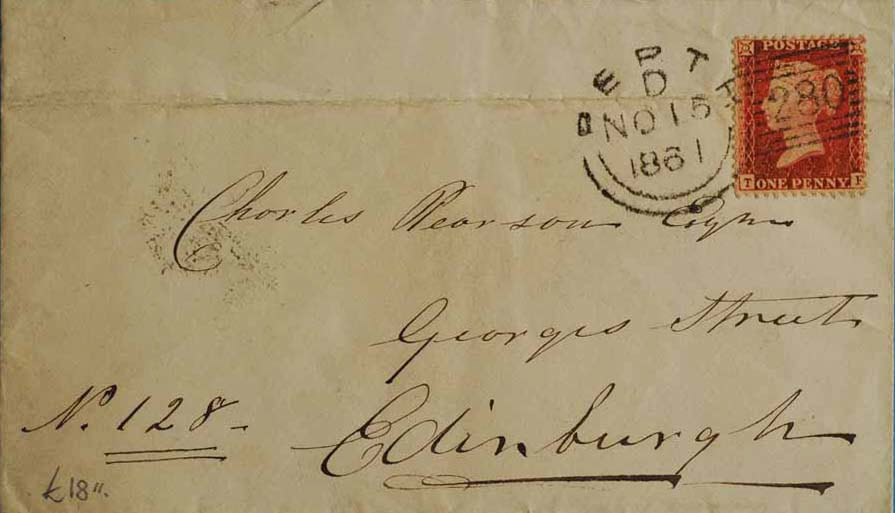 PERTH
D
NO 15
1861
280
POSTAGE
T ONE PENNY F
Charles Pearson Esqre
Georges Street
No. 128.
Edinburgh
£18"